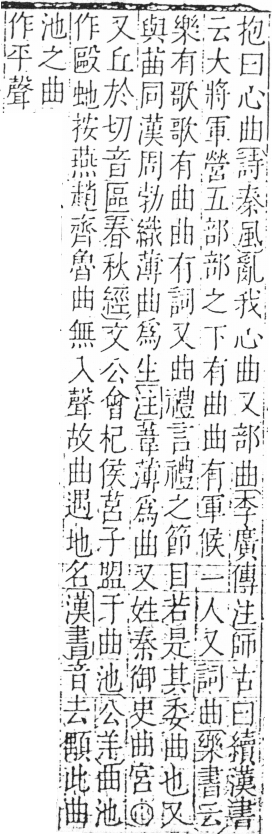 抱曰心曲詩秦風亂我心曲又部曲李廣傳注師古曰續漢書
云大將軍營五部部之下有曲曲有軍候一人又詞曲樂書云
樂有歌歌有曲曲有詞又曲禮言禮之節目若是其委曲也又
與苖同漢周勃織薄曲爲生注葦薄爲曲又姓秦御史曲宮⑪
又丘於切音區春秋經文公會杞侯莒子盟于曲池公羊曲池
作毆虵按燕趙齊魯曲無入聲故曲遇地名漢書音去顒此曲
池之曲
作平聲